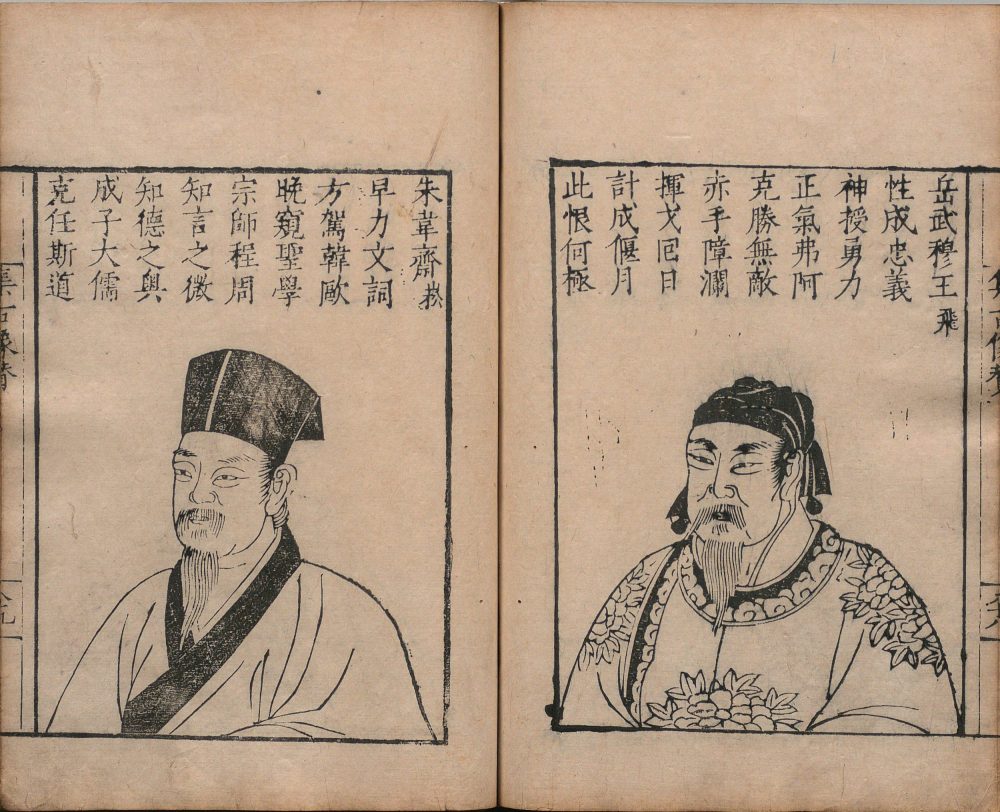 岳武穆王飛
性成忠義
神授勇力
正氣弗阿
克勝無敵
赤手障瀾
揮戈回日
計成偃月
此恨何極
朱韋齋松
早力文詞
方駕韓歐
晚窺聖學
宗師程周
知言之微
知德之奧
成子大儒
克任斯道